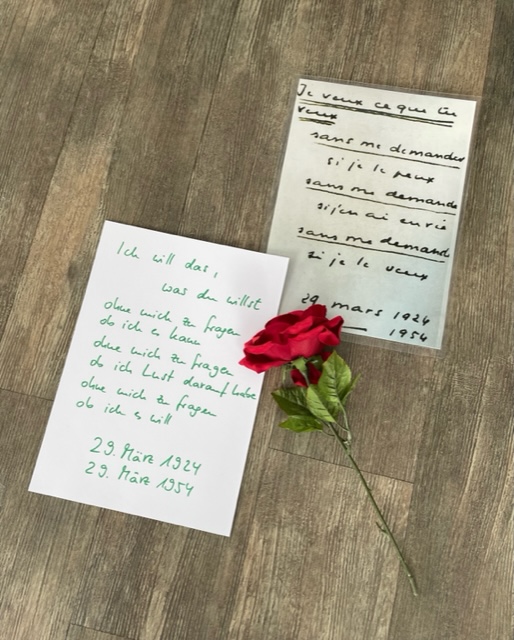 Ich will das,
was du willst
ohne mich zu fragen
ob ich es kann
ohne mich zu fragen
ob ich Lust darauf habe
ohne mich zu fragen
ob ich es will
29. März 1924
29. März 1954
Je veux ce que tu
veux
sans me demander
si je le peux
sans me demande
si j'en ai envie
sans me demand
si je le veux
29 mars 1924
1954